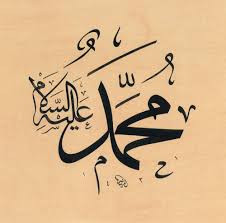 مُحَمَّد عَلَيْهِ السَّلَام